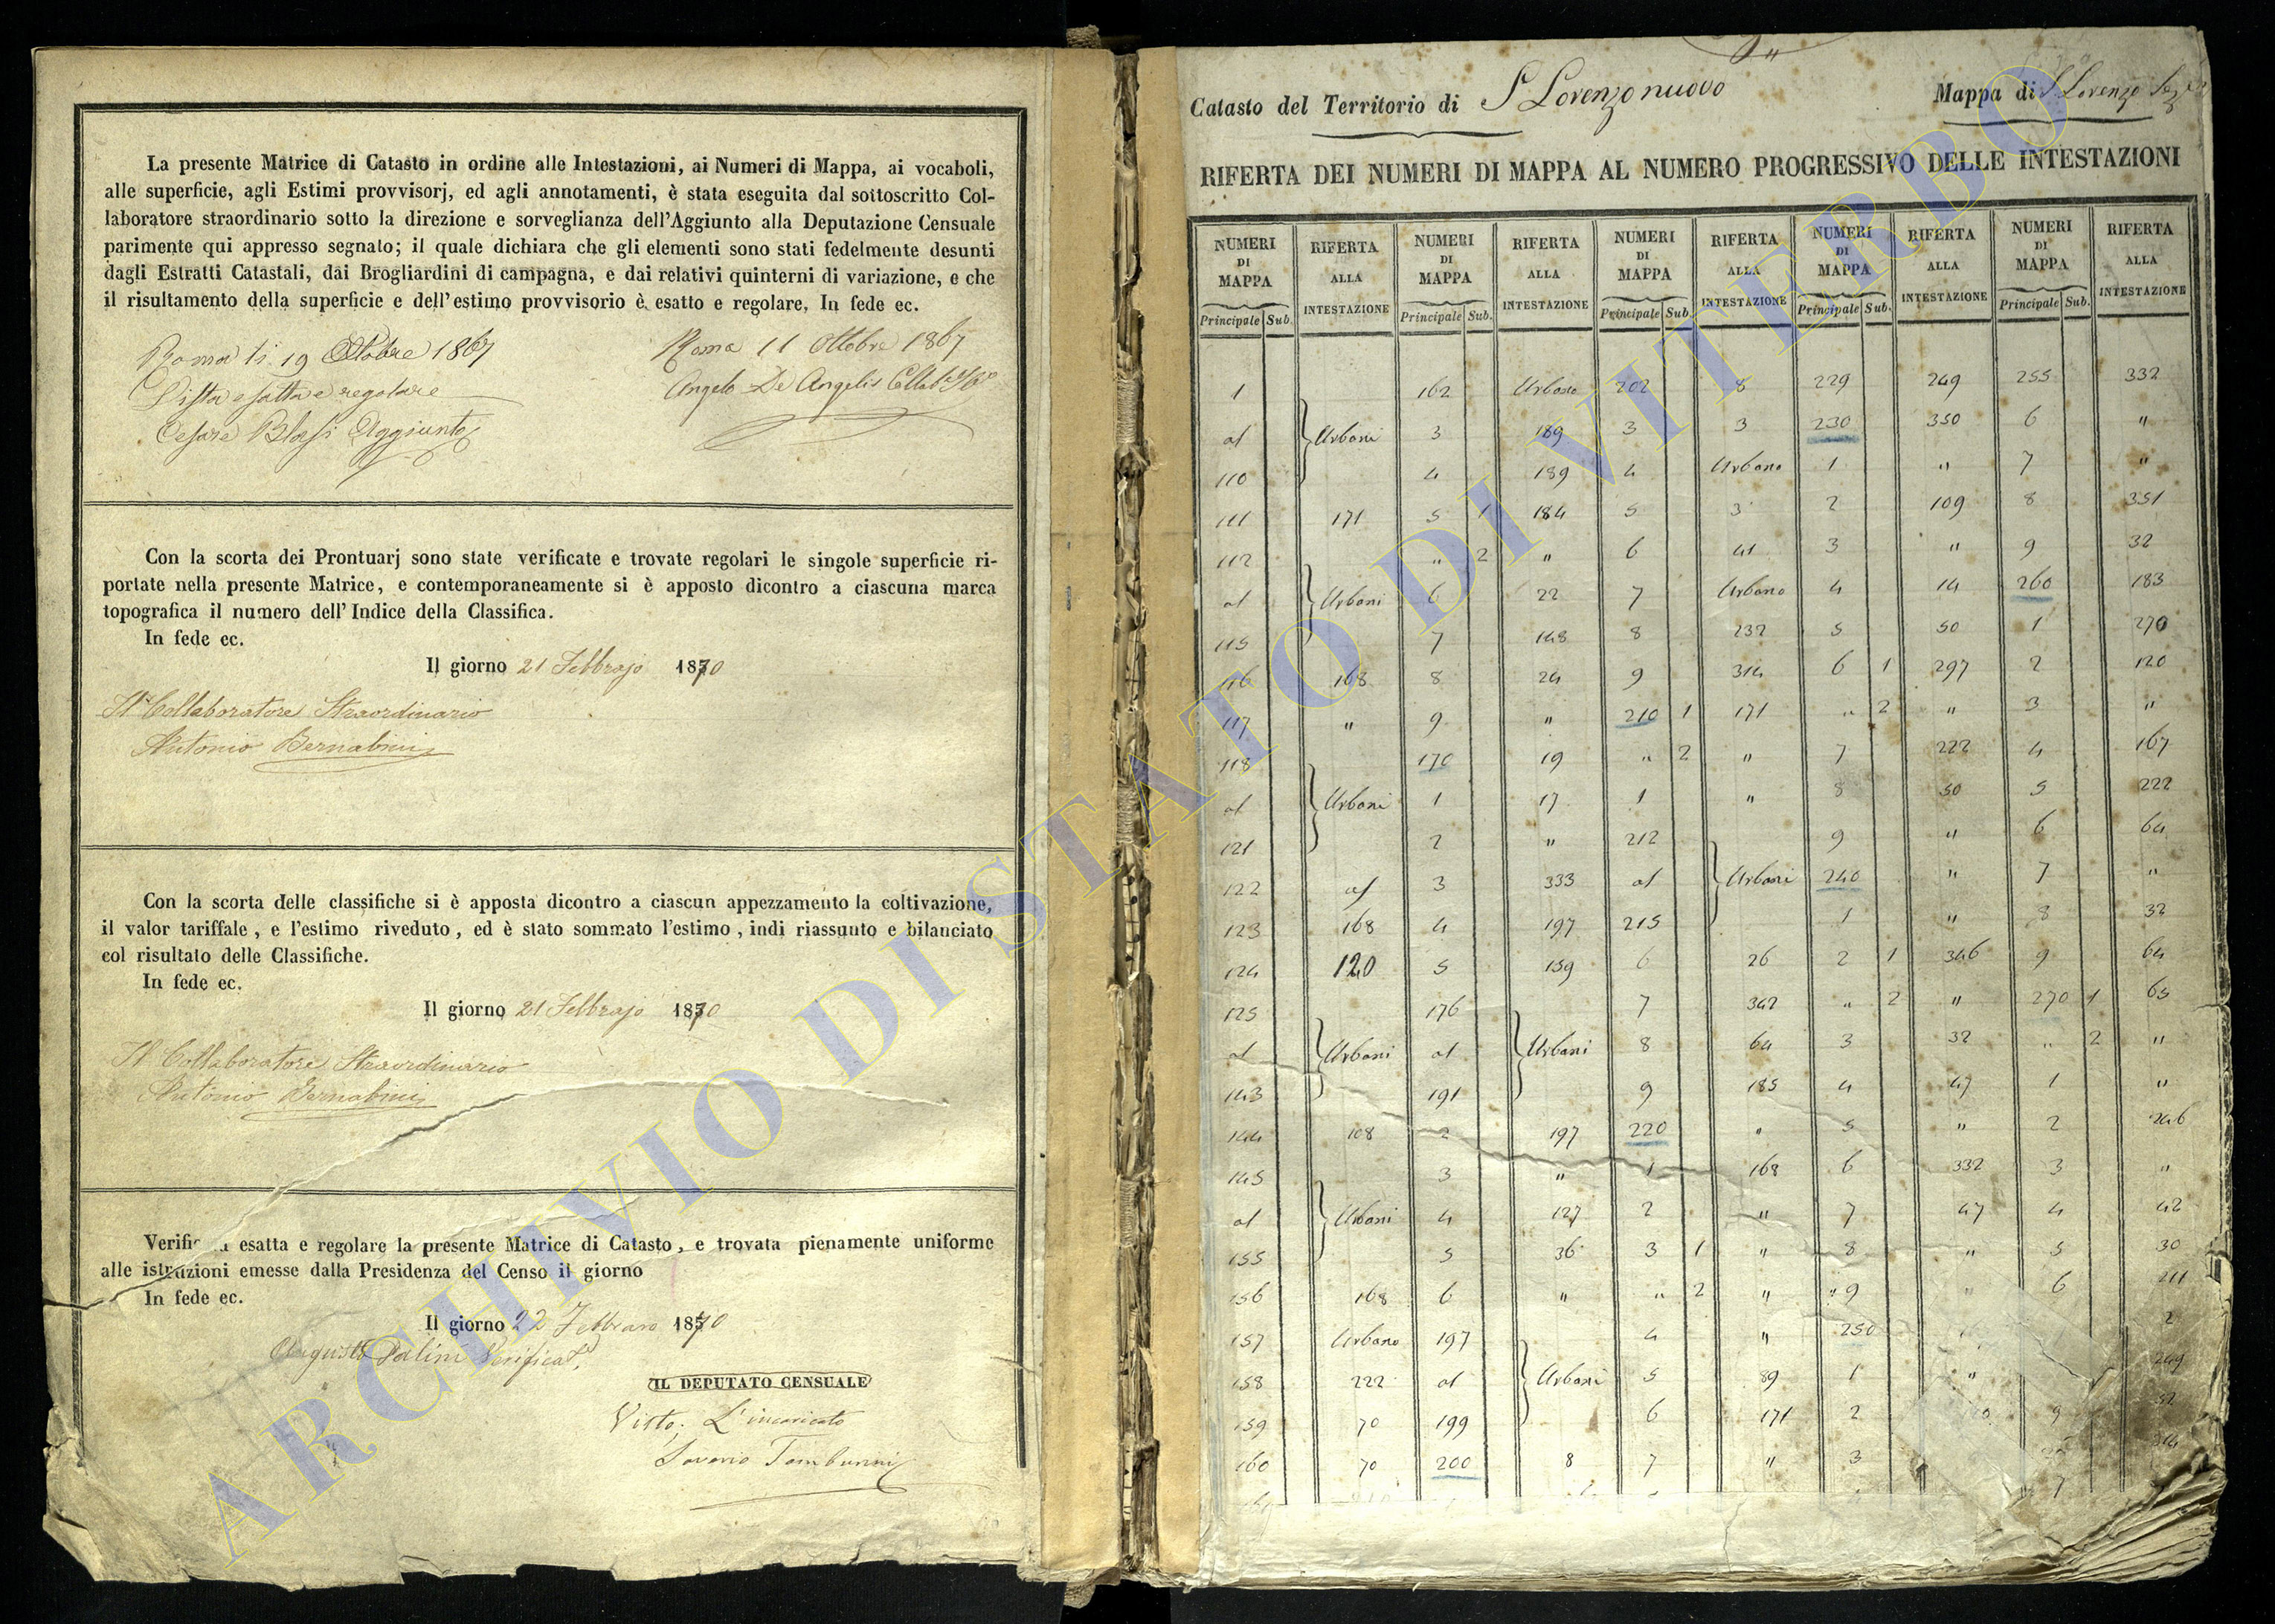 La presente Matrice di Catasto in ordine alle Intestazioni, ai Numeri di Mappa, ai vocaboli,
alle superficie, agli Estimi provvisorj, ed agli annotamenti, è stata eseguita dal sottoscritto Col-
laboratore straordinario sotto la direzione e sorveglianza dell'Aggiunto alla Deputazione Censuale
parimente qui appresso segnato; il quale dichiara che gli elementi sono stati fedelmente desunti
dagli Estratti Catastali, dai Brogliardini di campagna, e dai relativi quinterni di variazione, e che
il risultamento della superficie e dell'estimo provvisorio è esatto e regolare, In fede ec.
Roma li 19 Ottobre 1867
Vista esatta e regolare
Cesare Blasi Aggiunto
Roma 11 Ottobre 1867
Angelo De Angelis
Con la scorta dei Prontuarj sono state verificate e trovate regolari le singole superficie ri-
portate nella presente Matrice, e contemporaneamente si è apposto dicontro a ciascuna marca
topografica il numero dell'Indice della Classifica.
In fede ec.
Il giorno 21 Febbrajo 1870
Il Collaboratore Straordinario
Antonio Bernabini
Con la scorta delle classifiche si è apposta dicontro a ciascun appezzamento la coltivazione,
il valor tariffale, e l'estimo riveduto, ed è stato sommato l'estimo, indi riassunto e bilanciato
col risultato delle Classifiche.
In fede ec.
Il giorno 21 Febbrajo 1870
Il Collaboratore Straordinario
Antonio Bernabini
esatta e regolare la presente Matrice di Catasto, e trovata pienamente uniforme
alle istruzioni emesse dalla Presidenza del Censo il giorno
In fede ec.
Il giorno 22 Febbraro 1870
Augusto Palini Verificat.
IL DEPUTATO CENSUALE
Visto. L'incaricato
Saverio Tamburini
Catasto del Territorio di S Lorenzo nuovo
Mappa di S Lorenzo
RIFERTA DEI NUMERI DI MAPPA AL NUMERO PROGRESSIVO DELLE INTESTAZIONI
NUMERI DI MAPPA RIFERTA ALLA INTESTAZIONE NUMERI DI MAPPA RIFERTA ALLA INTESTAZIONE NUMERI DI MAPPA RIFERTA ALLA INTESTAZIONE NUMERI DI MAPPA RIFERTA ALLA INTESTAZIONE NUMERI DI MAPPA RIFERTA ALLA INTESTAZIONE
Principale Sub. Principale Sub. Principale Sub. Principale Sub. Principale Sub.
1 162 Urbano 202 8 229 249 255 332
al Urbani 3 189 3 3 230 350 6 "
110 4 189 4 Urbano 1 " 7 "
111 171 5 1 184 5 3 2 109 8 351
112 " 2 " 6 41 3 " 9 32
al Urbani 6 22 7 Urbano 4 14 260 183
115 7 148 8 232 5 50 1 270
116 168 8 24 9 314 6 1 297 2 120
117 " 9 " 210 1 171 " 2 " 3 "
118 170 19 " 2 " 7 222 4 167
al Urbani 1 17 1 " 8 50 5 222
121 2 " 212 9 " 6 64
122 al 3 333 al Urbani 240 " 7 "
123 168 4 197 215 1 " 8 32
124 120 5 159 6 26 2 1 346 9 64
125 176 7 342 " 2 " 270 1 65
al Urbani al Urbani 8 64 3 32 " 2 "
143 191 9 185 4 47 1 "
144 168 2 197 220 " 5 " 2 246
145 3 " 1 168 6 332 3 "
al Urbani 4 127 2 " 7 47 4 42
155 5 36 3 1 " 8 " 5 30
156 168 6 " " 2 " 9 6 211
157 Urbano 197 4 " 250 2
158 222 al Urbani 5 89 1 " 249
159 70 199 6 171 2 9
160 70 200 8 7 " 3
ARCHIVIO DI STATO DI VITERBO